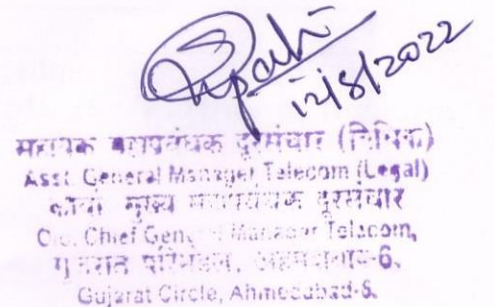 12/8/2022
सहायक महाप्रबंधक दूरसंचार (विधिक)
Asst. General Manager Telecom (Legal)
कार्या मुख्य महाप्रबंधक दूरसंचार
O/o. Chief General Manager Telecom,
गुजरात परिमंडल, अहमदाबाद-6.
Gujarat Circle, Ahmedabad-6.